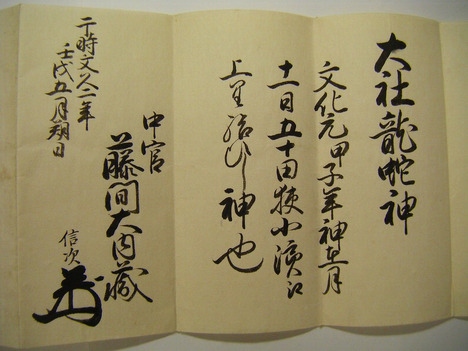 大社龍蛇神
文化元甲子年神在月
十一日五十田狭小濱江
上里給ひし神也
中官
藤間大内藏
信次
于時文久二年
壬戌五月朔日